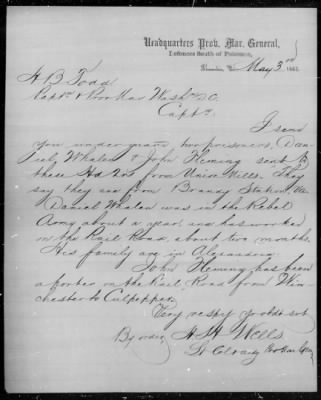 Headquarters Prov. Mar. General,
Defences South of Potomac,
Alexandria, Va. May 3rd 1863
H B Todd
Capt & Pro Mar Wash DC
Capt.
I send
you under guard two prisoners, Dan
iel Whalen & John Fleming sent to
these Hd Qrs from Union Mills. They
say they are from Brandy Station, Va
Daniel Whalen was in the Rebel
Army about a year and has worked
on the Rail Road about two months.
His family are in Alexandria
John Fleming has been
a porter on the Rail Road from Win
chester to Culpepper
Very respy yr obdt svt
By order H H Wells
Lt Col &